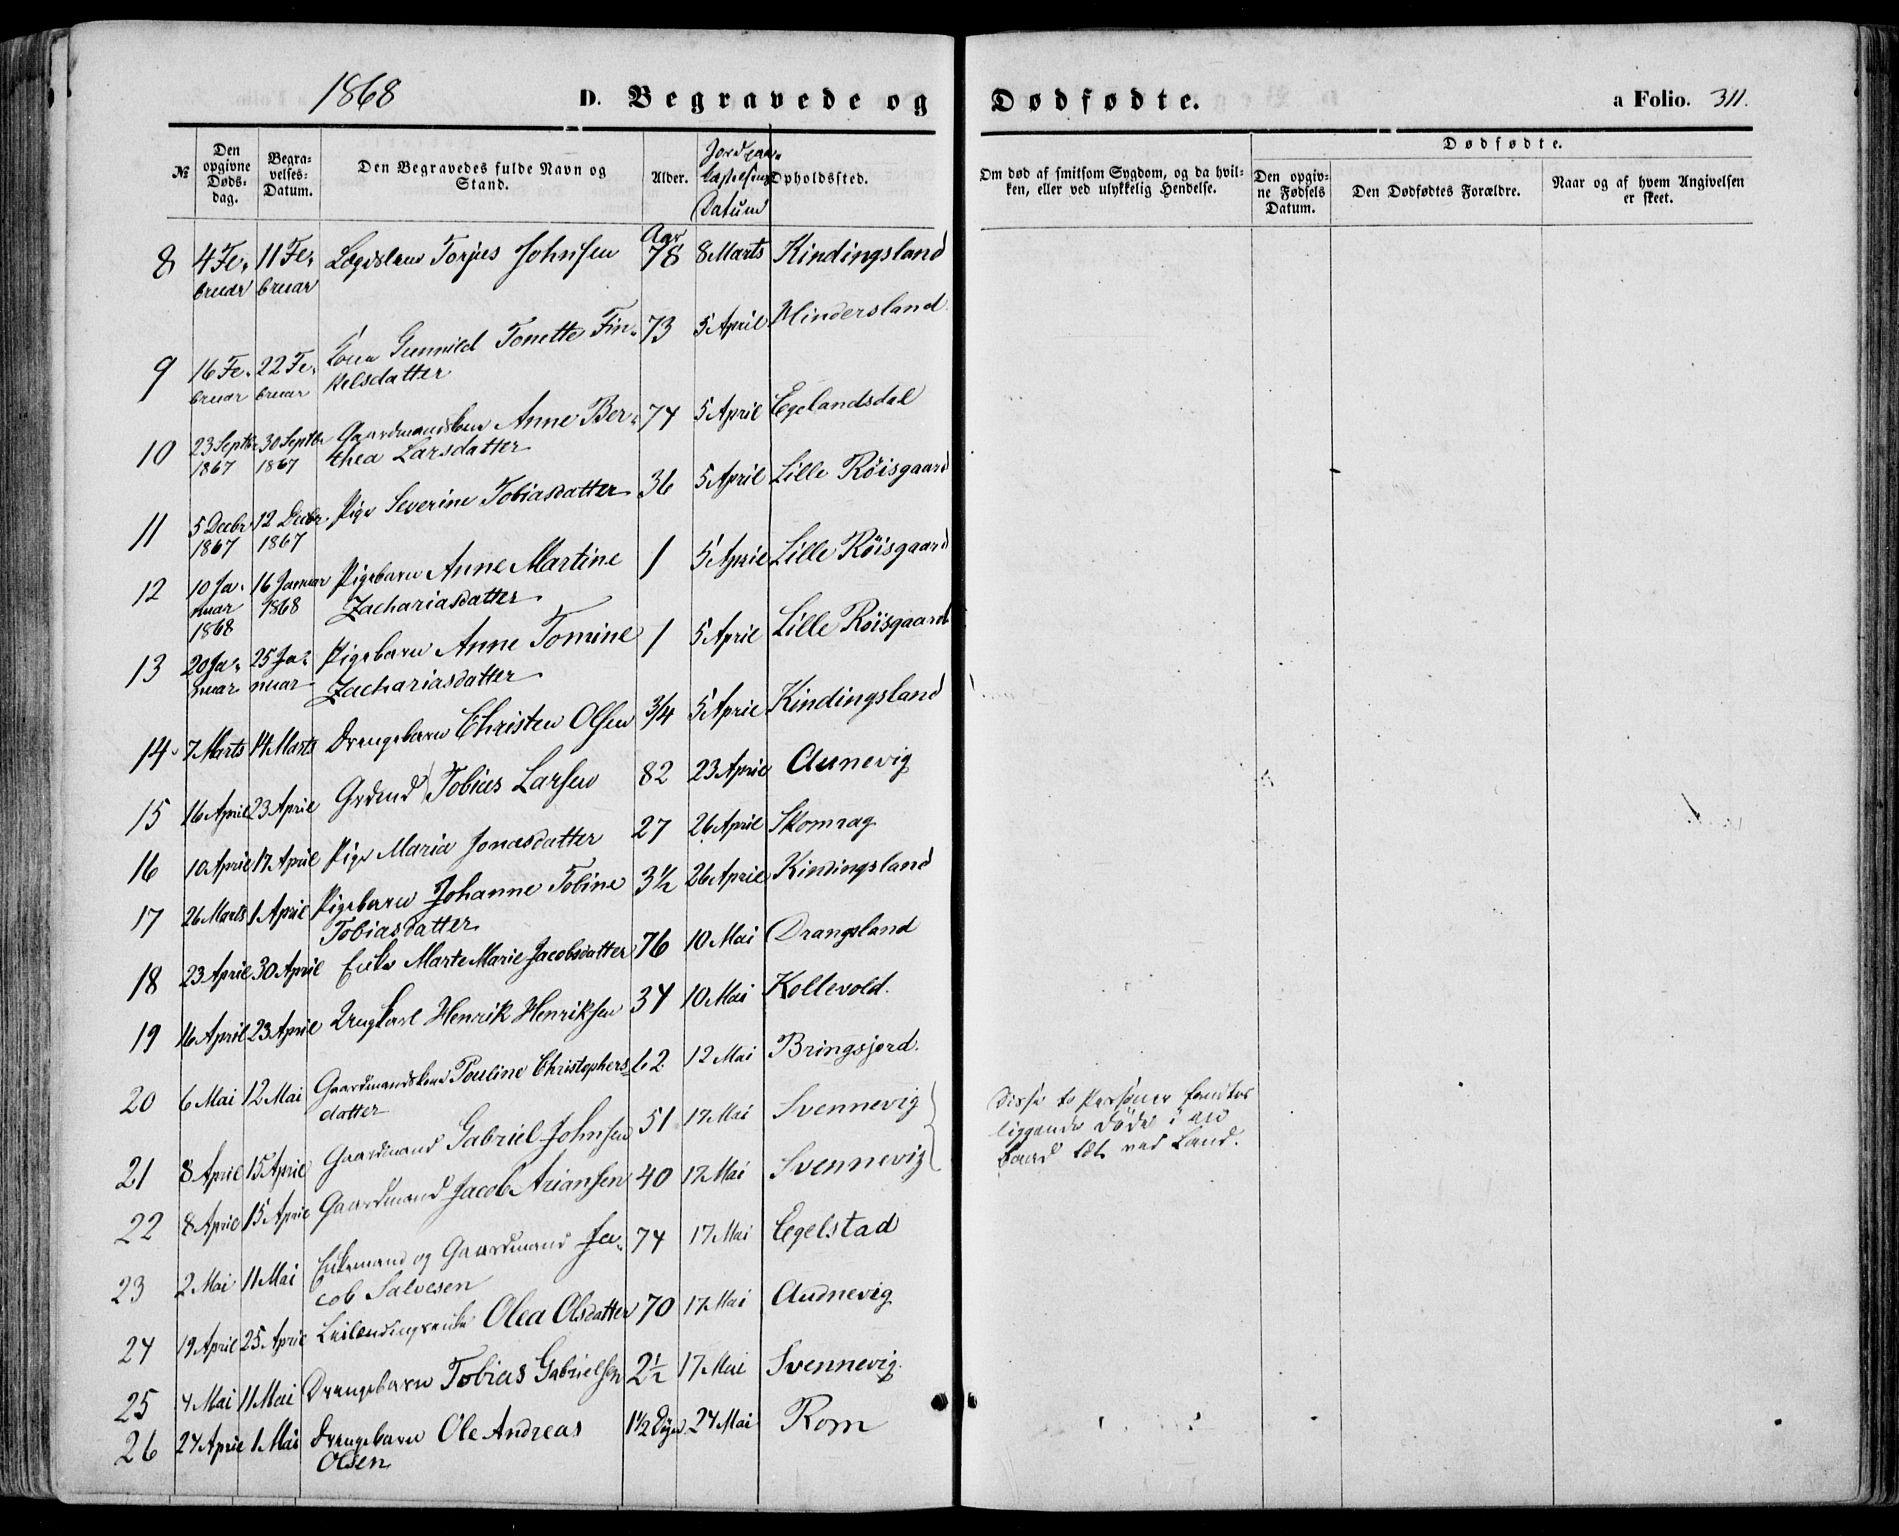 1868
D. Begravede og Dødfødte.
a Folio. 311.
№ Den opgivne Døds-dag. Begra-velses-Datum. Den Begravedes fulde Navn og Stand. Alder. Jordpaa-kastelsens Datum Opholdssted. Om død af smitsom Sygdom, og da hvil-ken, eller ved ulykkelig Hendelse. Dødfødte. Den opgiv-ne Fødsels Datum. Den Dødfødtes Forældre. Naar og af hvem Angivelsen er skeet.
Aar
8 4 Fe- 11 Fe- Torjus Johnsen 78 8 Marts Kindingsland
bruar bruar
9 16 Fe- 22 Fe- Gunnild Tonette Fin- 73 5 April Mindersland
bruar bruar kelsdatter
10 23 Septbr 30 Septbr Gaardmandsken Anne Ber- 74 5 April Egelandsdal
1867 1867 thea Larsdatter
11 5 Decbr 12 Decbr Pige Severine Tobiasdatter 36 5 April Lille Röisgaard
1867 1867
12 10 Ja- 16 Januar Pigebarn Anne Martine 1 5 April Lille Röisgaard
nuar 1868 Zachariasdatter
1868
13 20 Ja- 25 Ja- Pigebarn Anne Tomine 1 5 April Lille Röisgaard
nuar nuar Zachariasdatter
14 7 Marts 14 Marts Drengebarn Christen Olsen 3/4 5 April Kindingsland
15 16 April 23 April Grdmd Tobias Larsen 82 23 April Aunevig
16 10 April 17 April Pige Maria Jonasdatter 27 26 April Skomrag
17 26 Marts 1 April Pigebarn Johanne Tobine 3½ 26 April Kindingsland
Tobiasdatter
18 23 April 30 April Enke Marte Marie Jacobsdatter 76 10 Mai Drangsland
19 16 April 23 April Ungkarl Henrik Henriksen 34 10 Mai Kollevold.
20 6 Mai 12 Mai Gaardmandsken Pouline Christophers- 62 12 Mai Bringsjord.
datter
21 8 April 15 April Gaardmand Gabriel Johnsen 51 17 Mai Svennevig
Disse to Personer fandtes
liggende döde i en
baad tæt ved Land.
22 8 April 15 April Gaardmand Jacob Ariansen 40 17 Mai Svennevig
23 2 Mai 11 Mai Enkemand og Gaardmand Ja- 74 17 Mai Egelstad
cob Salvesen
24 19 April 25 April Leilendingsenke Olea Olsdatter 70 17 Mai Audnevig
25 4 Mai 11 Mai Drengebarn Tobias Gabrielsen 2½ 17 Mai Svennevig.
26 24 April 1 Mai Drengebarn Ole Andreas 1½ Dage 24 Mai Rom
Olsen